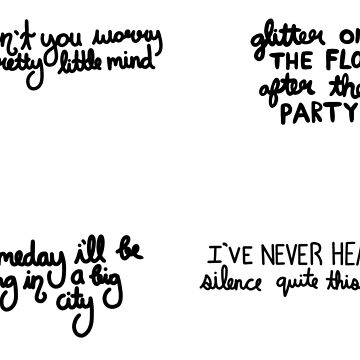 n't you worry
retty little mind
glitter on
THE FLO
after the
PARTY
meday i'll be
ng in a big
city
I'VE NEVER HEA
silence quite this